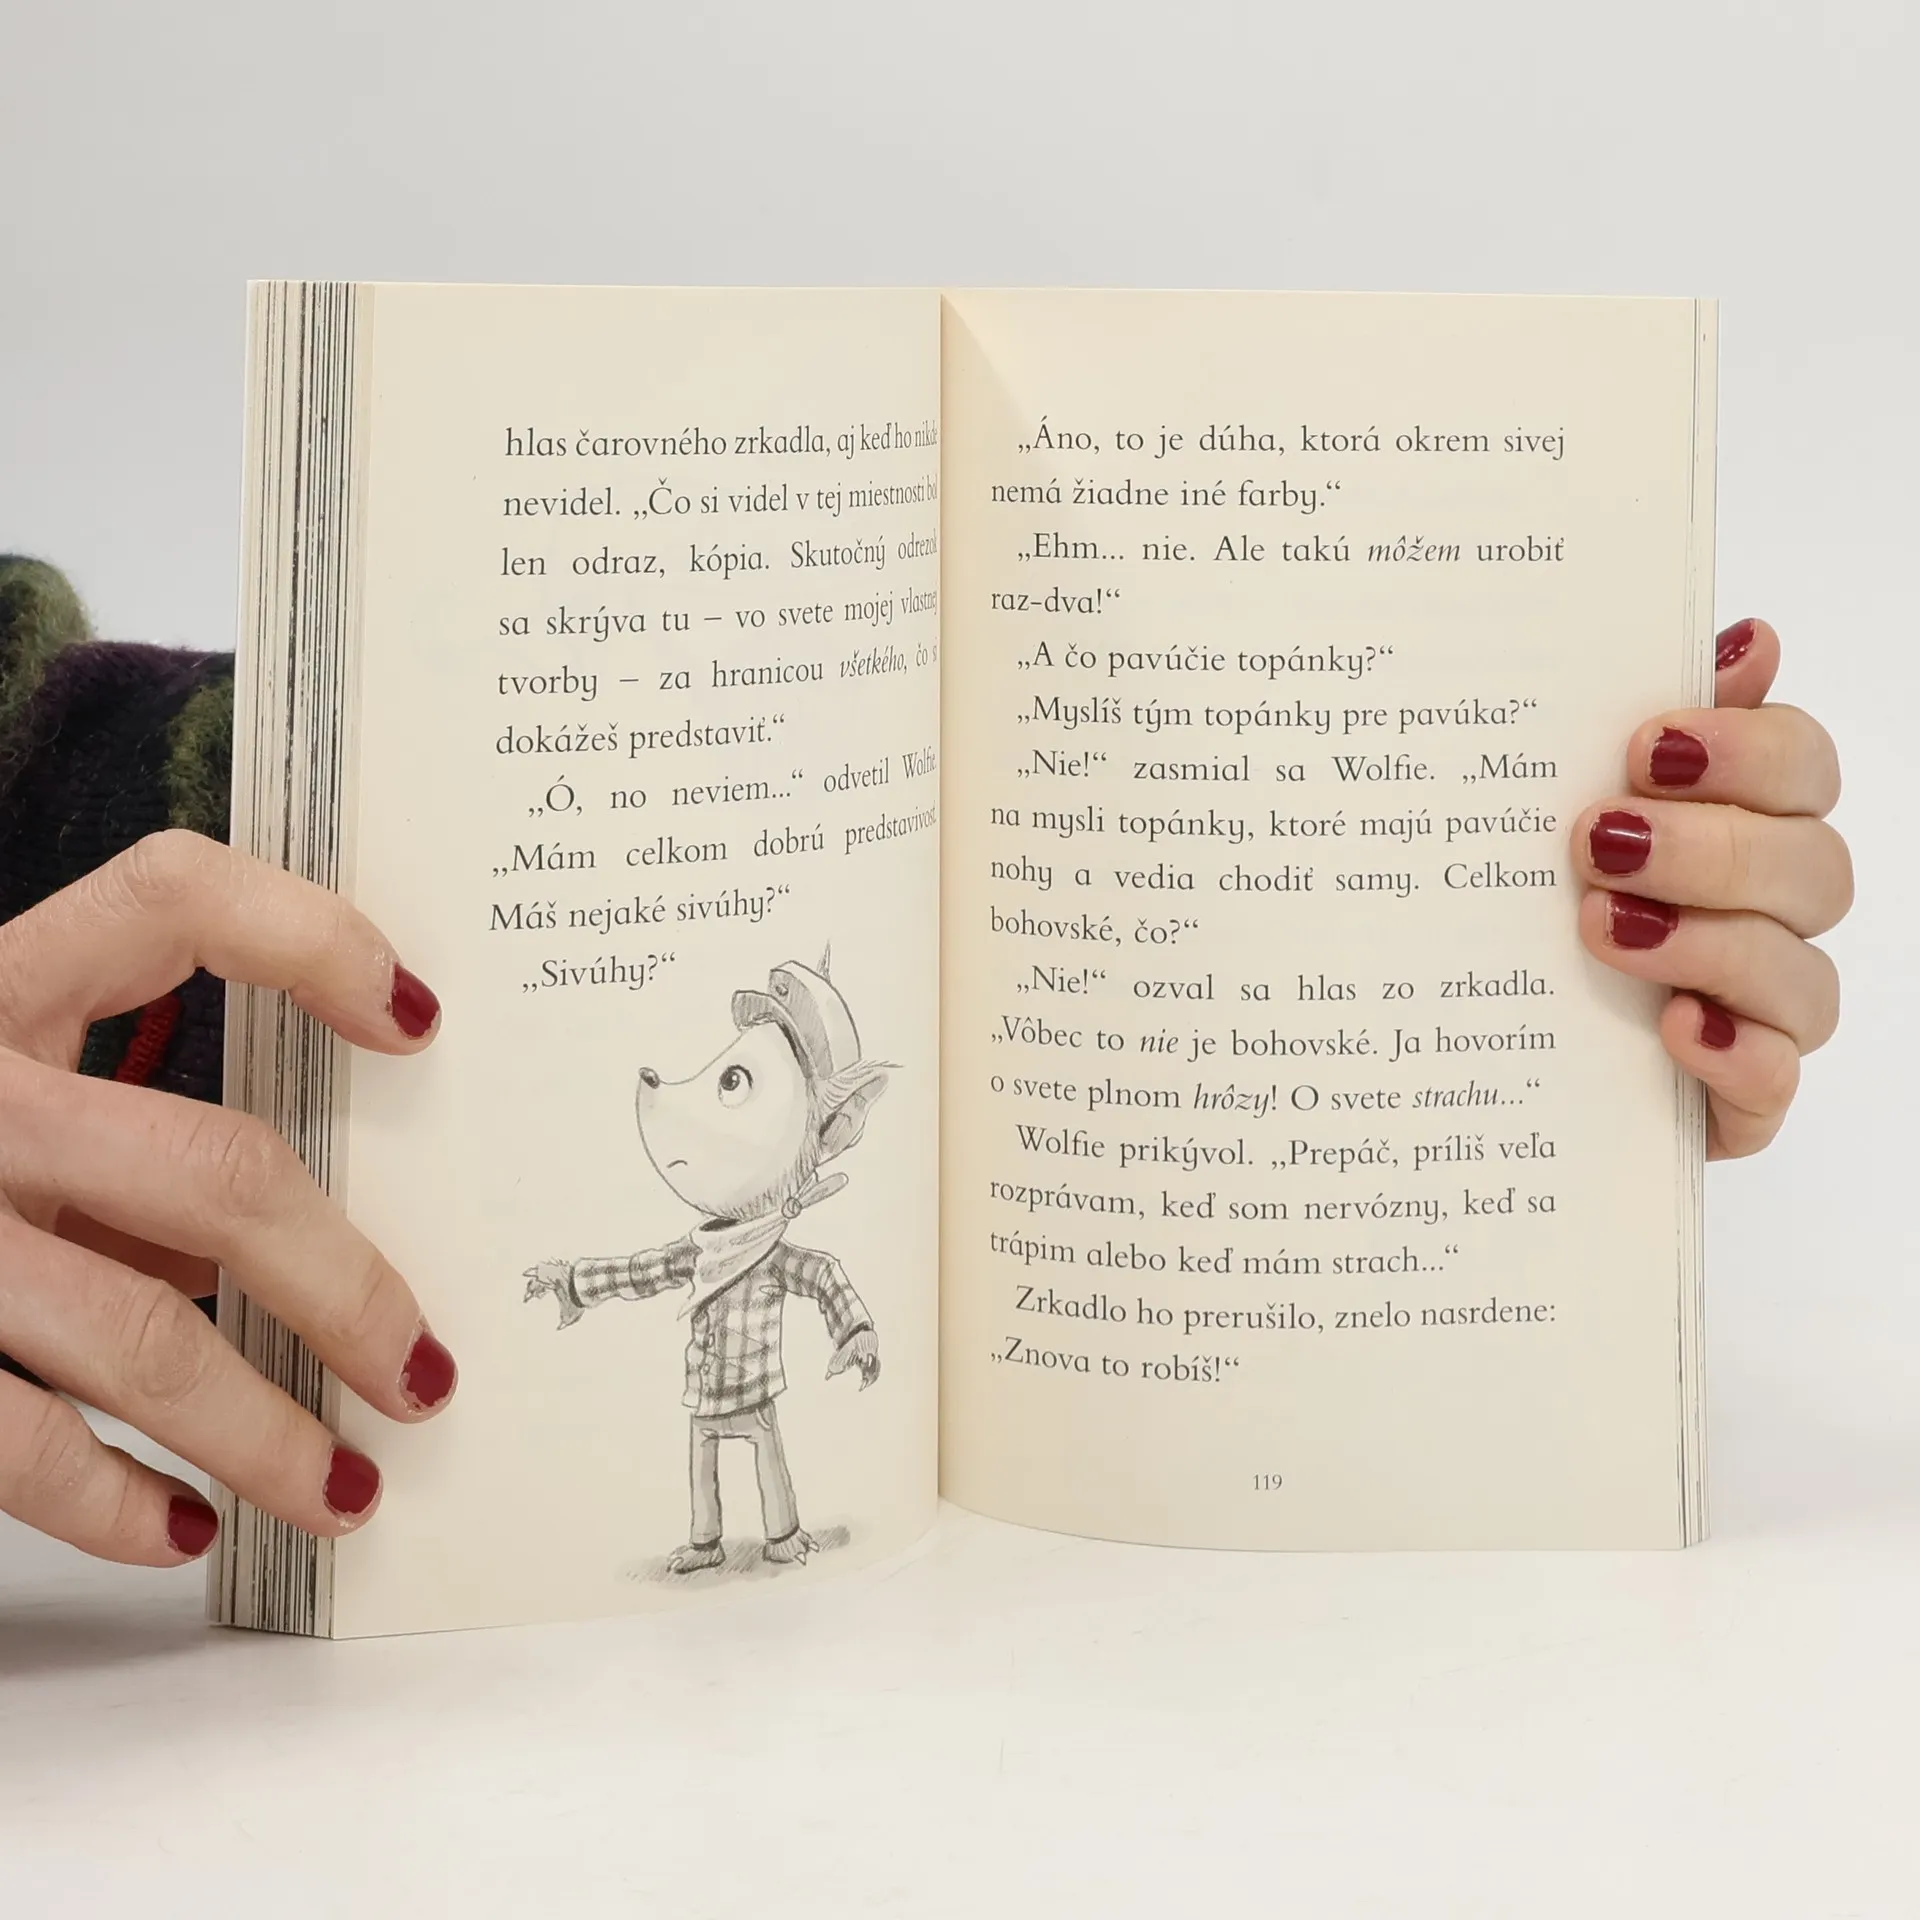 hlas čarovného zrkadla, aj keď ho nikde
nevidel. „Čo si videl v tej miestnosti bol
len odraz, kópia. Skutočný odrezok
sa skrýva tu – vo svete mojej vlastnej
tvorby – za hranicou všetkého, čo si
dokážeš predstaviť.“
„Ó, no neviem...“ odvetil Wolfie
„Mám celkom dobrú predstavivosť.
Máš nejaké sivúhy?“
„Sivúhy?“
„Áno, to je dúha, ktorá okrem sivej
nemá žiadne iné farby.“
„Ehm... nie. Ale takú môžem urobiť
raz-dva!“
„A čo pavúčie topánky?“
„Myslíš tým topánky pre pavúka?“
„Nie!“ zasmial sa Wolfie. „Mám
na mysli topánky, ktoré majú pavúčie
nohy a vedia chodiť samy. Celkom
bohovské, čo?“
„Nie!“ ozval sa hlas zo zrkadla.
„Vôbec to nie je bohovské. Ja hovorím
o svete plnom hrôzy! O svete strachu...“
Wolfie prikývol. „Prepáč, príliš veľa
rozprávam, keď som nervózny, keď sa
trápim alebo keď mám strach...“
Zrkadlo ho prerušilo, znelo nasrdene:
„Znova to robíš!“
119